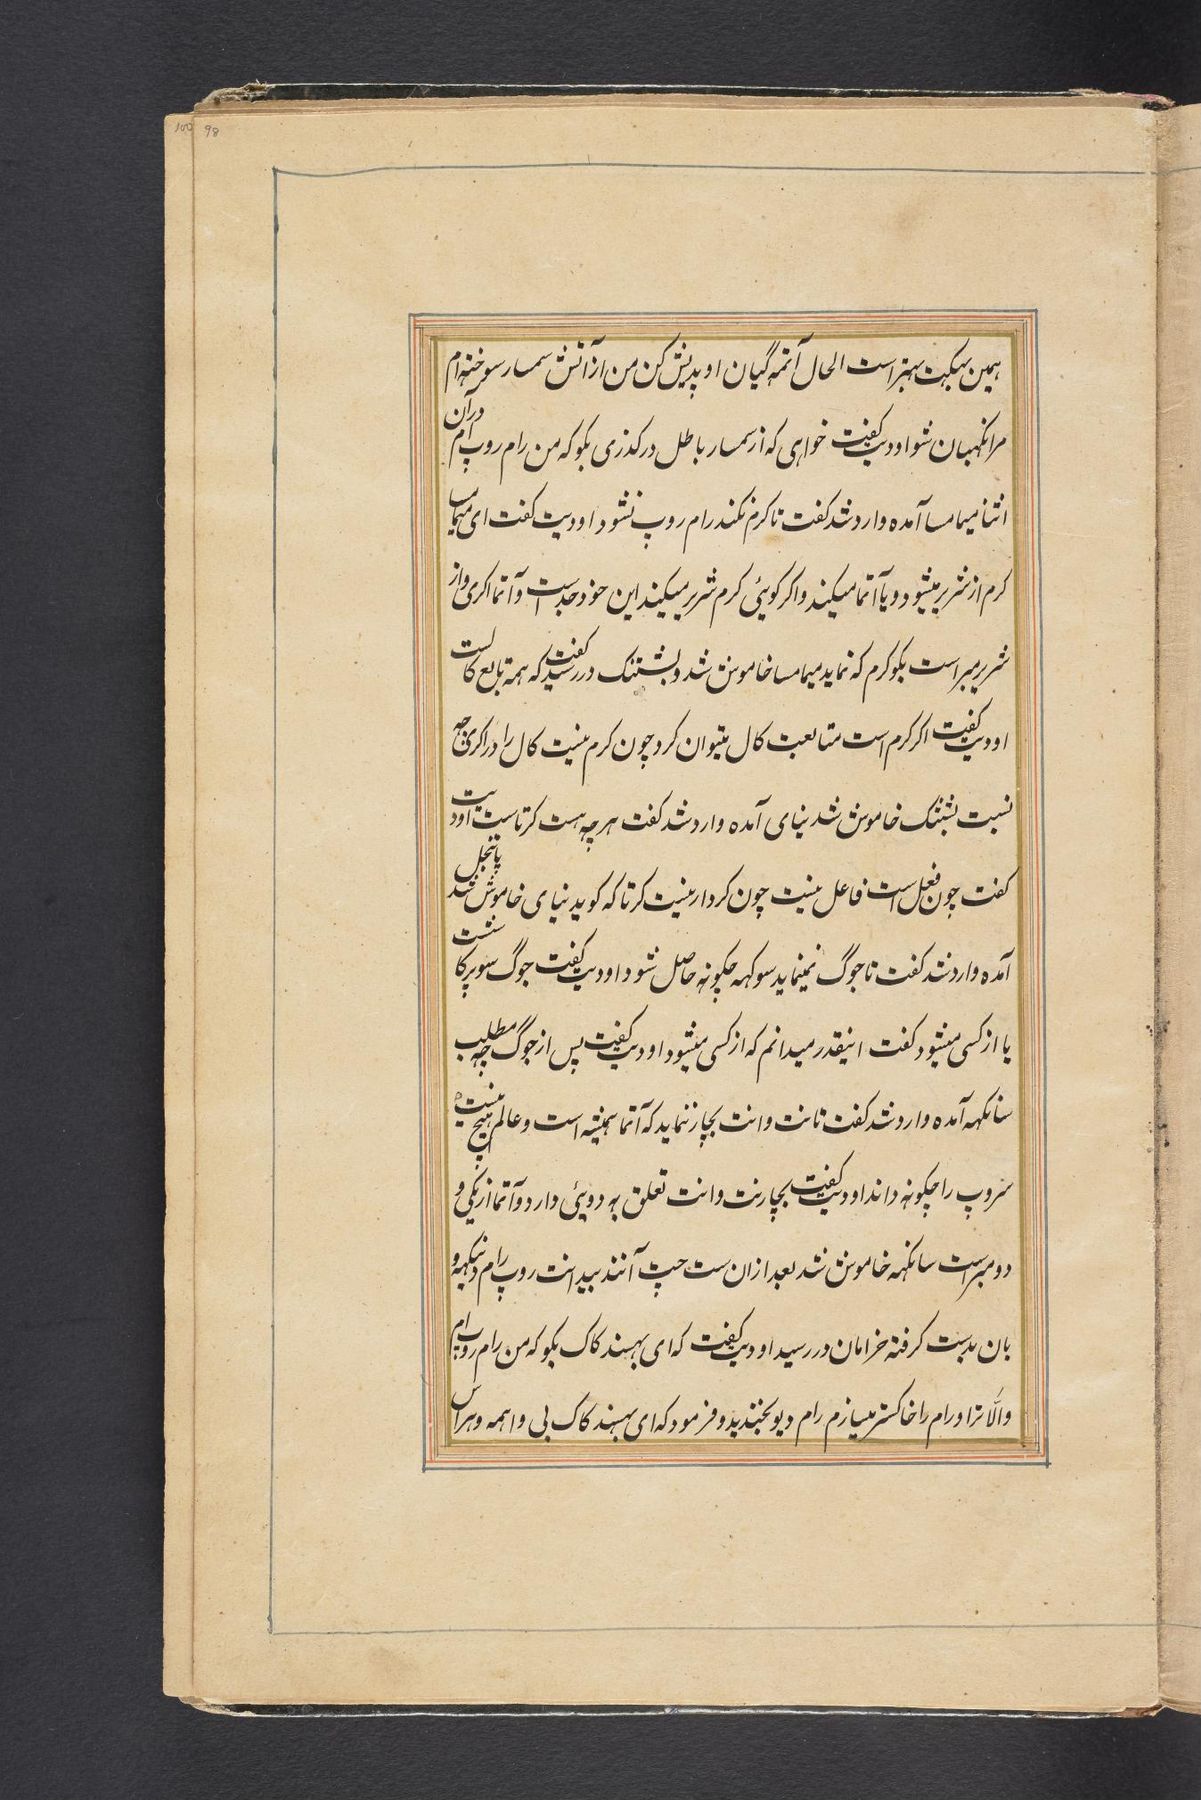 100 98
همین بهکت بهتر است الحال آتمه گیان اوپدیش کن من از آتش سمسار سوخته ام
مرا نگهبان شو اودیت گفت خواهی که از سمسار باطل درگذری بگو که من رام روپ ام درآن
اثنا میمامسا آمده وارد شد گفت تا کرم نکند رام روپ نشود اودیت گفت ای میمامسا
کرم از شریر میشود و یا آتما میکند و اگر گویئی کرم شریر میکند این خود جد است و آتما اکری و از
شریر مبراست بگو کرم که نماید میمامسا خاموش شد و بشیشنک در رسید گفت که همه تابع کالست
اودیت گفت اگر کرم است متابعت کال میتوان کرد چون کرم نیست کال را در اکری چه
نسبت بشیشنک خاموش شد نیای آمده وارد شد گفت هر چه هست کرتاست اودیت
گفت چون فعل است فاعل نیست چون کردار نیست کرتا که گوید نیای خاموش شد پاتنجل
آمده وارد شد گفت تا جوگ نمینماید سوکهه چگونه حاصل شود اودیت گفت جوگ سوپرکاشست
یا از کسی میشود گفت اینقدر میدانم که از کسی میشود اودیت گفت پس از جوگ چه مطلب
سانکهه آمده وارد شد گفت تا نت وانت بچار ننماید که آتما همیشه است و عالم هیچ نیست
سروپ را چگونه داند اودیت گفت بچار نت وانت تعلق به دویئی دارد و آتما از یکی و
دو مبراست سانکهه خاموش شد بعد از ان ست چت آنند بیدانت روپ رام دنکهه و
بان بدست گرفته خرامان در رسید اودیت گفت که ای بهسند کاک بگو که من رام روپ ام
والّا ترا و رام را خاکستر میسازم رام دیو بخندید و فرمود که ای بهسند کاک بی واهمه و هراس